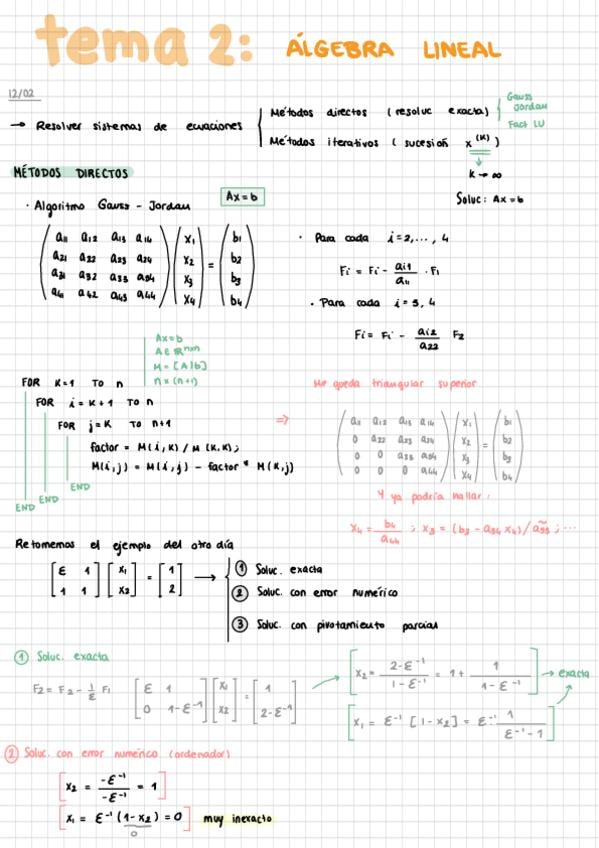 tema 2: ÁLGEBRA LINEAL
12/02
→ Resolver sistemas de ecuaciones
Métodos directos (resoluc exacta)
Gauss
Jordan
Fact LU
Métodos iterativos (sucesión x^(K))
K → ∞
Soluc: Ax = b
MÉTODOS DIRECTOS
· Algoritmo Gauss - Jordan
Ax = b
a11 a12 a13 a14 x1 b1
a21 a22 a23 a24 x2 = b2
a31 a32 a33 a34 x3 b3
a41 a42 a43 a44 x4 b4
· Para cada i=2,..., 4
Fi = Fi - ai1/a11 · F1
· Para cada i = 3, 4
Fi = Fi - ai2/a22 F2
Ax=b
A∈ℝ^nxn
M = [A|b]
n x (n+1)
FOR K=1 TO n
FOR i = K+1 TO n
FOR j=K TO n+1
factor = M(i,K) / M(K,K);
M(i,j) = M(i,j) - factor * M(K,j)
END
END
END
⇒
Me queda triangular superior
a11 a12 a13 a14 x1 b1
0 a22 a23 a24 x2 = b2
0 0 a33 a34 x3 b3
0 0 0 a44 x4 b4
Y ya podría hallar:
x4 = b4/a44 ; x3 = (b3 - a34 x4)/ã33 ; ...
Retomemos el ejemplo del otro día
[ε 1] [x1] = [1] →
[1 1] [x2] [2]
① Soluc. exacta
② Soluc. con error numérico
③ Soluc. con pivotamiento parcial
① Soluc. exacta
F2 = F2 - 1/ε F1
[ε 1] [x1] = [1]
[0 1-ε^-1] [x2] [2-ε^-1]
[x2 = (2-ε^-1)/(1-ε^-1) = 1 + 1/(1-ε^-1)] → exacta
[x1 = ε^-1 [1-x2] = ε^-1 · 1/(ε^-1 - 1)]
② Soluc. con error numérico (ordenador)
[x2 = -ε^-1/-ε^-1 = 1]
[x1 = ε^-1 (1-x2) = 0] muy inexacto
0